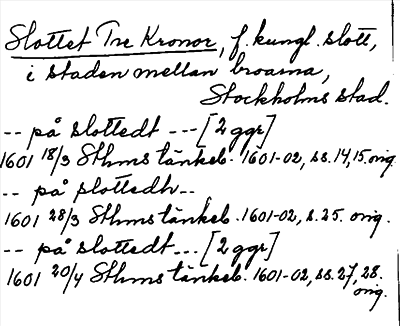 Slottet Tre Kronor, f. kungl. slott,
i staden mellan broarna,
Stockholms stad.
-- på slottedt --- [2 ggr]
1601 18/3 Sthms tänkeb. 1601-02, ss. 14, 15. orig.
-- på slottedh --
1601 28/3 Sthms tänkeb. 1601-02, s. 25. orig.
-- på slottedt --- [2 ggr]
1601 20/4 Sthms tänkeb. 1601-02, ss. 27, 28.
orig.